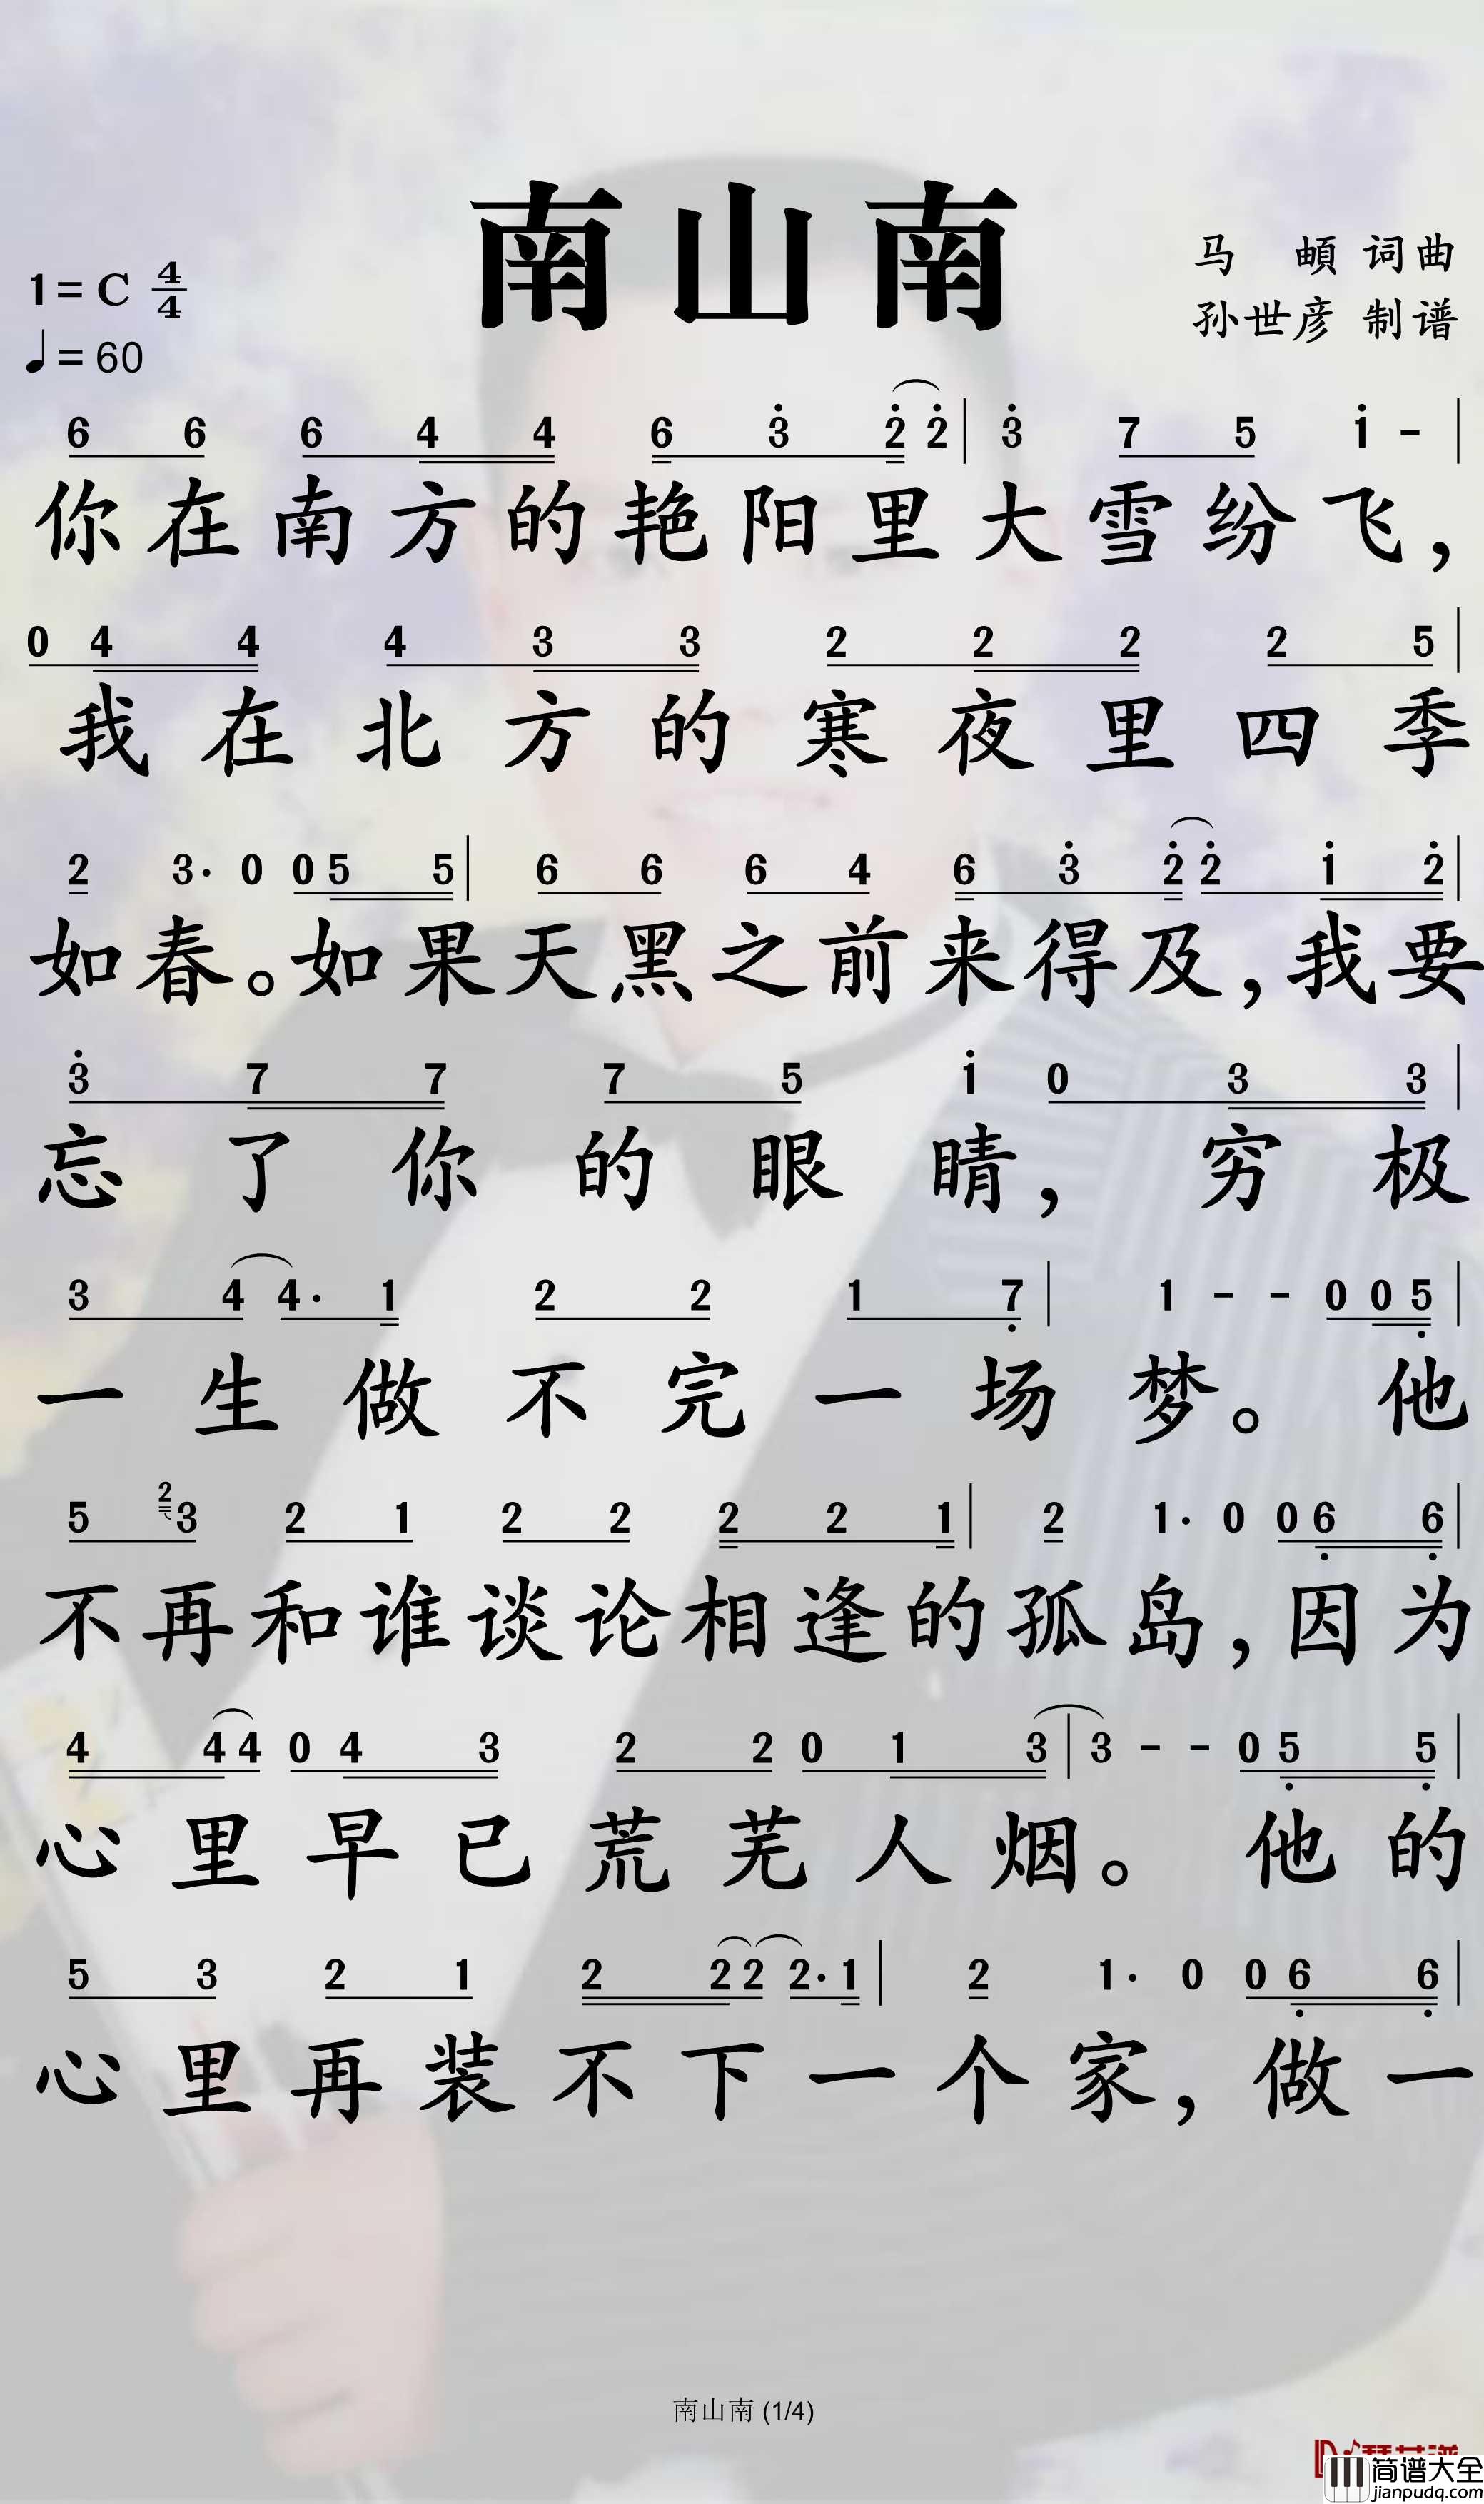 南山南
1=C 4/4
♩=60
马 頔 词曲
孙世彦 制谱
6 6 6 4 4 6 3̇ 2̇ 2̇ | 3̇ 7 5 1̇ - |
你在南方的艳阳里大雪纷飞，
0 4 4 4 3 3 2 2 2 2 5 |
我在北方的寒夜里四季
2 3· 0 0 5 5 | 6 6 6 4 6 3̇ 2̇ 2̇ 1̇ 2̇ |
如春。如果天黑之前来得及，我要
3̇ 7 7 7 5 1̇ 0 3 3 |
忘了你的眼睛，穷极
3 4 4· 1 2 2 1 7̣ | 1 - - 0 0 5̣ |
一生做不完一场梦。他
5 2 3 2 1 2 2 2 2 1 | 2 1· 0 0 6̣ 6̣ |
不再和谁谈论相逢的孤岛，因为
4 4 4 0 4 3 2 2 0 1 3 | 3 - - 0 5̣ 5̣ |
心里早已荒芜人烟。他的
5 3 2 1 2 2 2 2· 1 | 2 1· 0 0 6̣ 6̣ |
心里再装不下一个家，做一
南山南 (1/4)
简谱大全
jianpudq.com